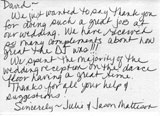 David-
We just wanted to say thank you
for doing such a great job at
our wedding. We have received
so many comments about how
great the DJ was!!!
We spent the majority of the
wedding reception on the dance
floor having a great time.
Thanks for all your help &
suggestions
Sincerely- Julie & Jason Mattison